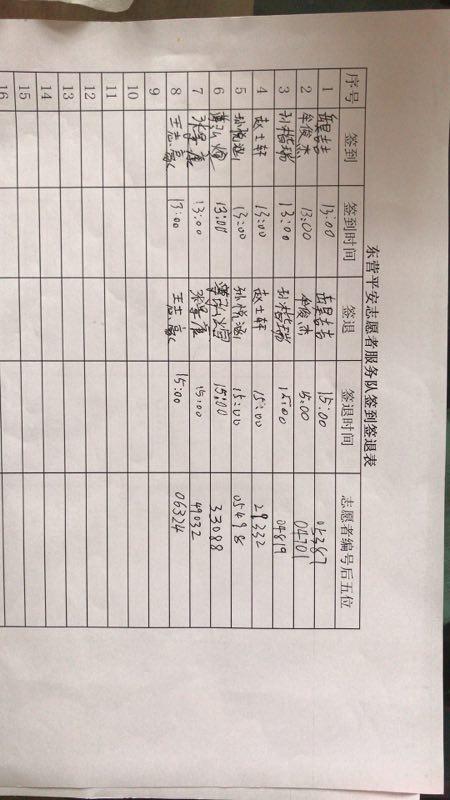 东营平安志愿者服务队签到签退表
序号 签到 签到时间 签退 签退时间 志愿者编号后五位
1 13:00 15:00 05387
2 牟俊杰 13:00 牟俊杰 15:00 04701
3 孙楷瑞 13:00 孙楷瑞 15:00 04819
4 赵士轩 13:00 赵士轩 15:00 29332
5 孙悦涵 13:00 孙悦涵 15:00 05498
6 13:00 15:00 33088
7 13:00 15:00 49032
8 13:00 15:00 06324
9
10
11
12
13
14
15
16